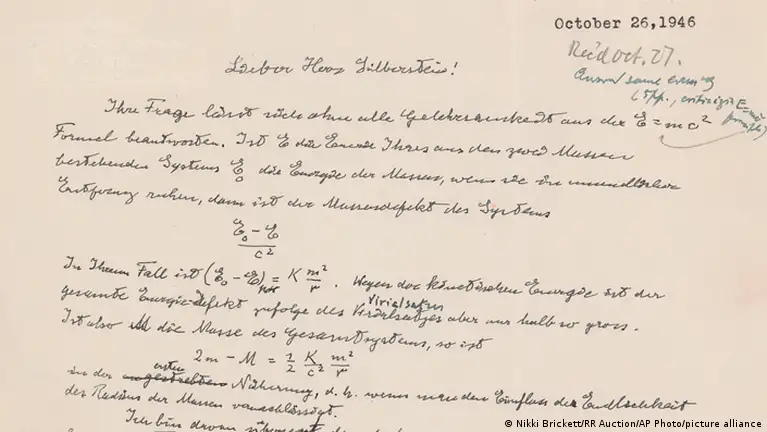 October 26,1946
Rec'd Oct. 27.
Answ'd same evening
Lieber Herr Silberstein!
Ihre Frage lässt sich ohne alle Gelehrsamkeit aus der E = mc²
Formel beantworten. Ist E die Energie Ihres aus den zwei Massen
bestehenden Systems E₀ die Energie der Massen, wenn sie in unendlicher
Entfernung ruhen, dann ist der Massendefekt des Systems
E₀ - E
c²
In Ihrem Fall ist (E₀ - E)pot = K m²/r. Wegen der kinetischen Energie ist der
gesamte Energie-defekt zufolge des Virialsatzes aber nur halb so gross.
Ist also M die Masse des Gesamtsystems, so ist
2m - M = 1/2 K/c² m²/r
in der ersten Näherung, d. h. wenn man den Einfluss der Endlichkeit
des Radius der Massen vernachlässigt.
Ich bin davon überzeugt,
© Nikki Brickett/RR Auction/AP Photo/picture alliance